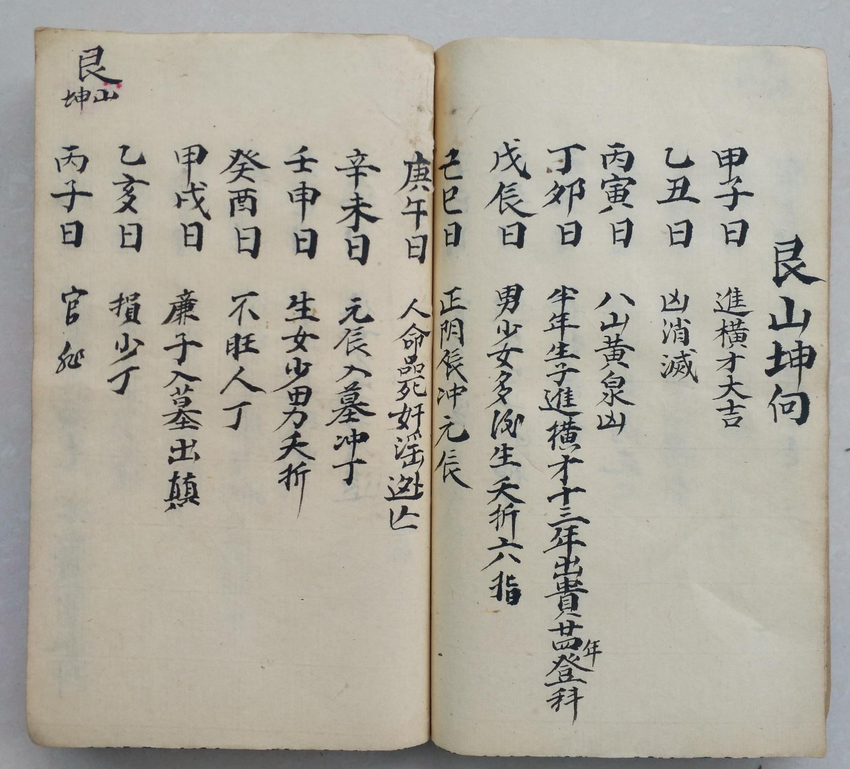 艮山坤向
甲子日 進橫才大吉
乙丑日 凶消滅
丙寅日 八山黃泉凶
丁卯日 半年生子進橫才十三年出貴廿四年登科
戊辰日 男少女多後生夭折六指
己巳日 正阴張冲元辰
庚午日 人命品死奸淫迯亡
辛未日 元辰入墓冲丁
壬申日 生女少男夭折
癸酉日 不旺人丁
甲戌日 廉子入墓出顛
乙亥日 損少丁
丙子日 官
艮山坤